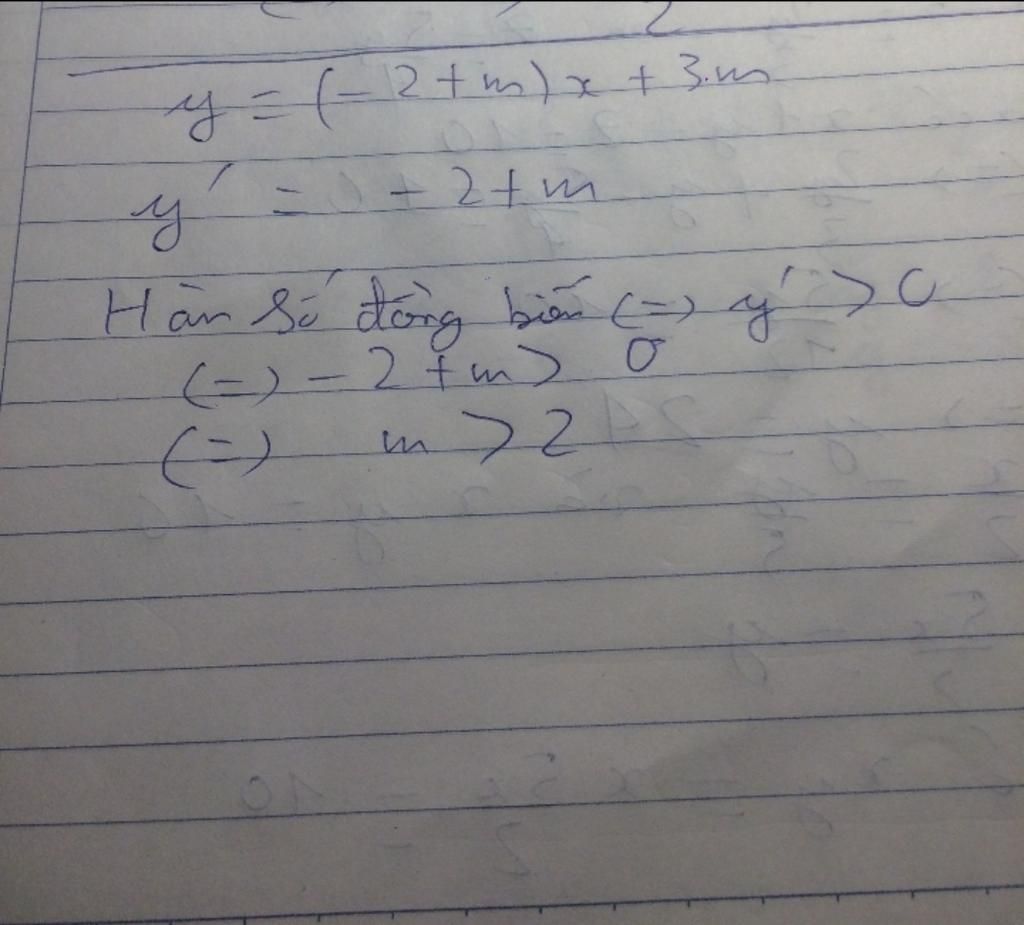 y = (-2+m)x + 3.m
y' = -2+m
Hàn số đồng biến (=) y' > 0
(=) -2+m > 0
(=) m > 2